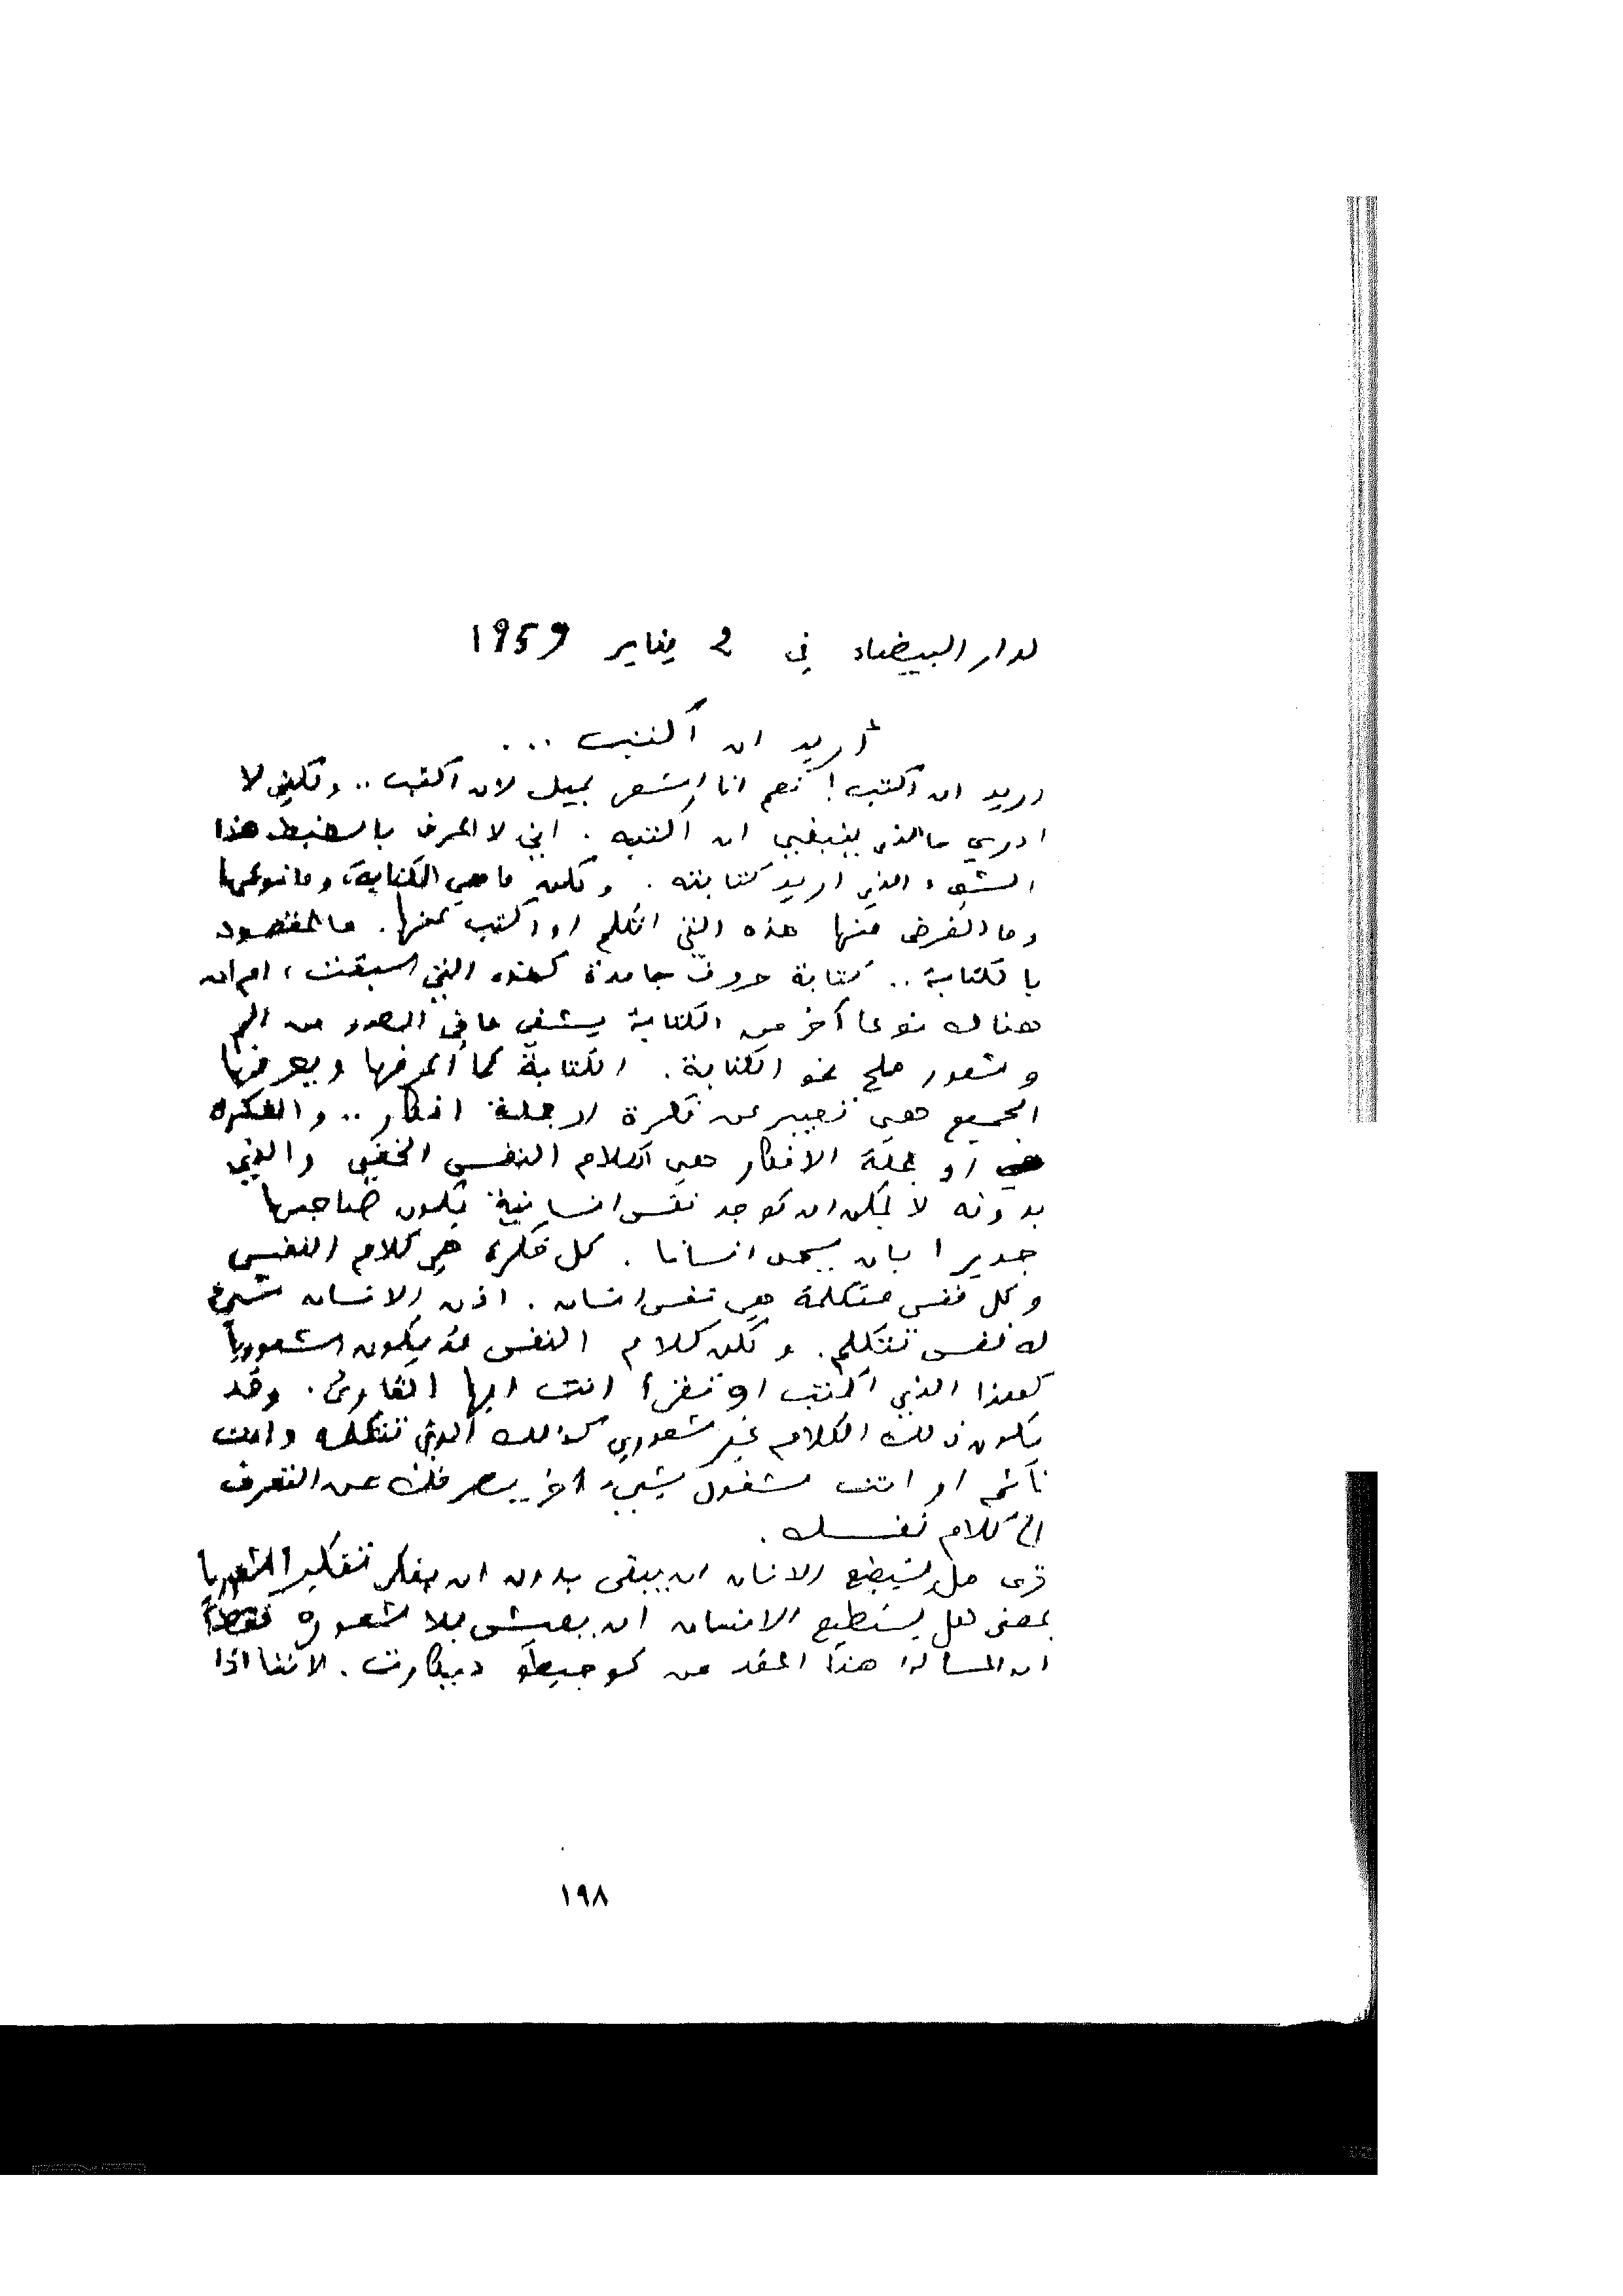 لدار البيضاء في 2 يناير 1959
أريد ان أكتب ...
اريد ان اكتب! نعم انا اشعر بميل لان اكتب .. ولكني لا
ادري ما الذي ينبغي ان اكتبه . اني لا اعرف بالضبط هذا
الشيء الذي اريد كتابته . ولكن ما هي الكتابة، وما نوعها
وما الغرض منها هذه التي اتكلم او اكتب عنها. ما المقصود
بالكتابة .. كتابة حروف جامدة كهذه التي اسبقت ، ام ان
هناك نوعا آخر من الكتابة يشفي ما في الصدر من الم
وشعور ملح نحو الكتابة . الكتابة كما اعرفها ويعرفها
الجميع هي تعبير عن فكرة او جملة افكار .. والفكرة
او جملة الافكار هي كلام النفس الخفي والذي
بدونه لا يمكن ان توجد نفس انسانية يكون صاحبها
جديرا بان يسمى انسانا . كل فكرة هي كلام النفس
وكل نفس متكلمة هي نفس انسان . اذن الانسان شيء
له نفس تتكلم . ولكن كلام النفس قد يكون شعوريا
كهذا الذي اكتب او تقرأ انت ايها القارئ . وقد
يكون ذلك الكلام غير شعوري كذلك الذي تتكلمه وانت
نائم او انت مشغول بشيء آخر يصرفك عن التعرف
الى كلام نفسك .
ترى هل يستطيع الانسان ان يبقى بدون ان يفكر تفكيرا شعوريا
بمعنى هل يستطيع الانسان ان يعيش بلا شعوره فقط؟
ان المسالة هنا اعقد من كوجيطو ديكارت . لاننا اذا
١٩٨